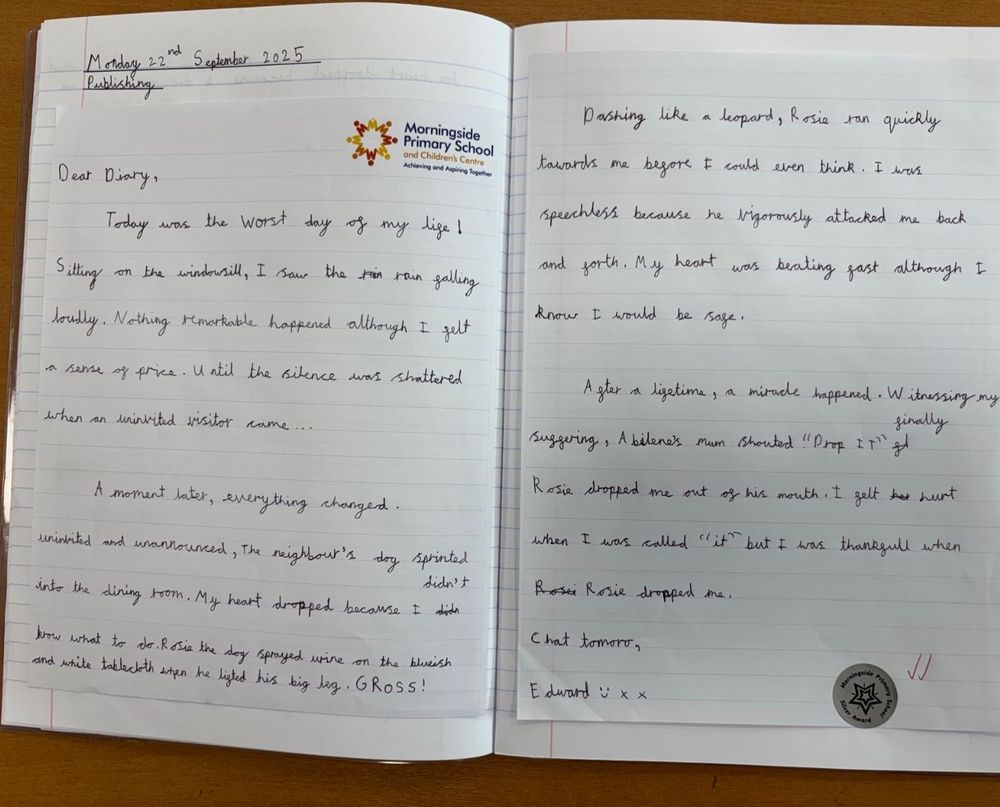 Monday 22nd September 2025
Publishing
Morningside
Primary School
and Children's Centre
Achieving and Aspiring Together
Dear Diary,
Today was the worst day of my life!
Sitting on the windowsill, I saw the rain rain falling
loudly. Nothing remarkable happened although I felt
a sense of price. Until the silence was shattered
when an uninvited visitor came...
A moment later, everything changed.
uninvited and unannounced, The neighbour's dog sprinted
didn't
into the dining room. My heart dropped because I didn
know what to do. Rosie the dog sprayed urine on the blueish
and white tablecloth when he lifted his big leg. GROSS!
Dashing like a leopard, Rosie ran quickly
towards me before I could even think. I was
speechless because he vigorously attacked me back
and forth. My heart was beating fast although I
know I would be safe.
After a lifetime, a miracle happened. Witnessing my
finally
suffering, Abilene's mum shouted "Drop IT"
Rosie dropped me out of his mouth. I felt her hurt
when I was called "it" but I was thankfull when
Rosei Rosie dropped me.
Chat tomoro,
Edward x x
Morningside Primary School
Silver Award